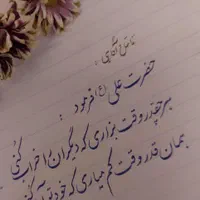 حضرت علی (ع) فرمود :
هر چقدر وقت بزاری که دیگران را خراب کنی
بمان قدر وقت کم میاری که خودتو